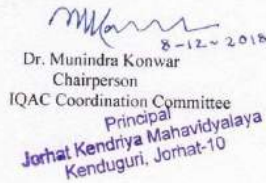 8-12-2018
Dr. Munindra Konwar
Chairperson
IQAC Coordination Committee
Principal
Jorhat Kendriya Mahavidyalaya
Kenduguri, Jorhat-10